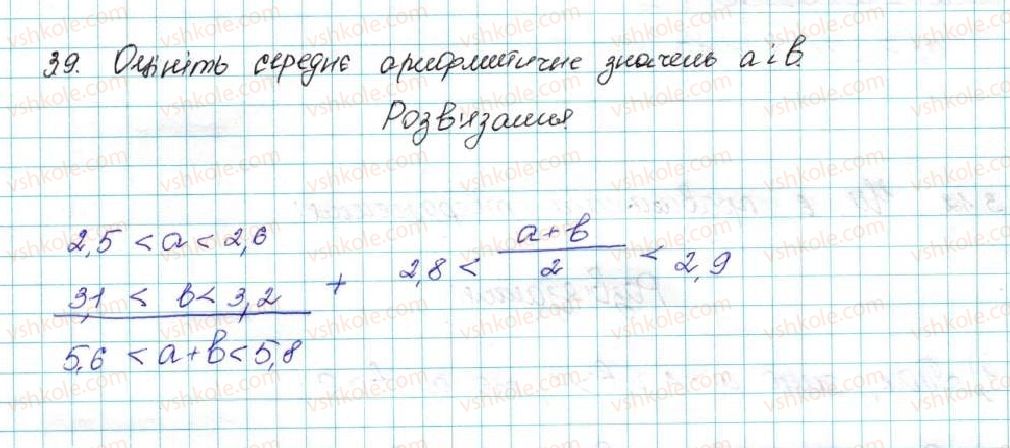 39. Оцініть середнє арифметичне значень a і b.
Розв'язання
2,5 < a < 2,6
3,1 < b < 3,2
+
5,6 < a + b < 5,8
2,8 < (a + b)/2 < 2,9
vshkole.com